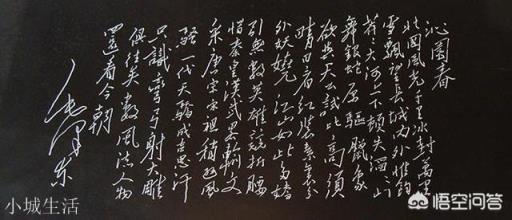 沁园春
北国风光千里冰封万里
雪飘望长城内外惟馀
莽莽大河上下顿失滔滔山
舞银蛇原驱臘象
欲与天公试比高须
晴日看红装素裹分
外妖娆江山如此多娇
引无数英雄竞折腰
惜秦皇汉武略输文
采唐宗宋祖稍逊风
骚一代天骄成吉思汗
只识弯弓射大雕
俱往矣数风流人物
还看今朝
毛泽东
小城生活
悟空问答